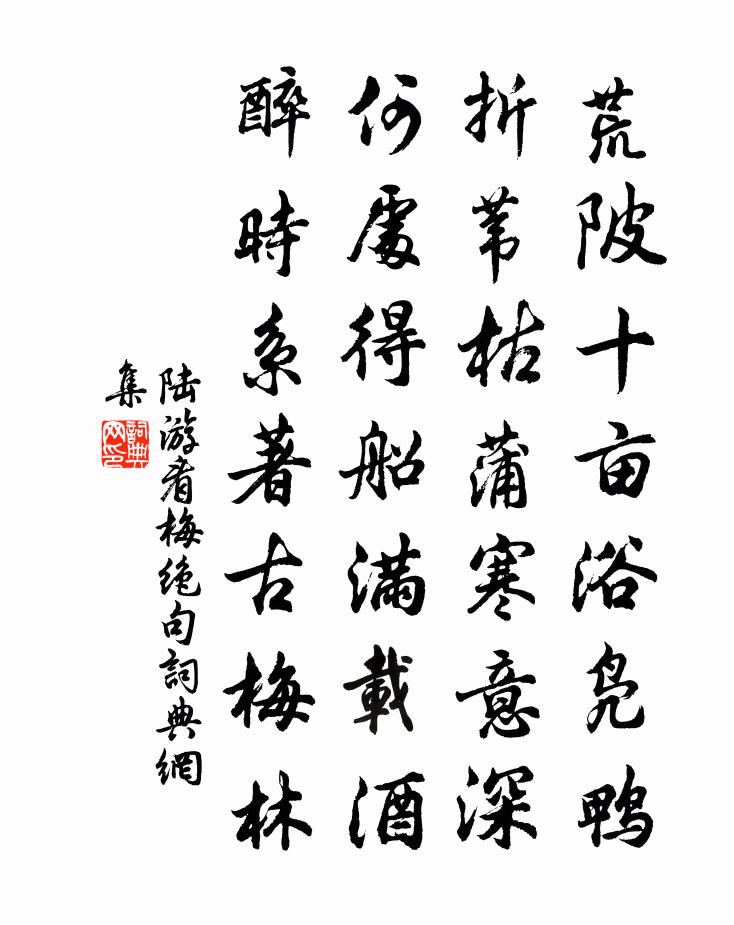 荒陂十亩浴凫鸭
折苇枯蒲寒意深
何處得船滿載酒
醉時系著古梅林
陆游看梅绝句詞典網
集
詞典
网印